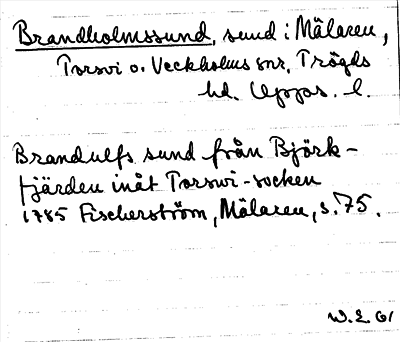 Brandholmssund, sund i Mälaren,
Torsvi o. Veckholms snr, Trögds
hd. Uppss. l.
Brandulfs sund från Björk-
fjärden inåt Torsvi-socken
1785 Fischerström, Mälaren, s. 75.
W.E. 61